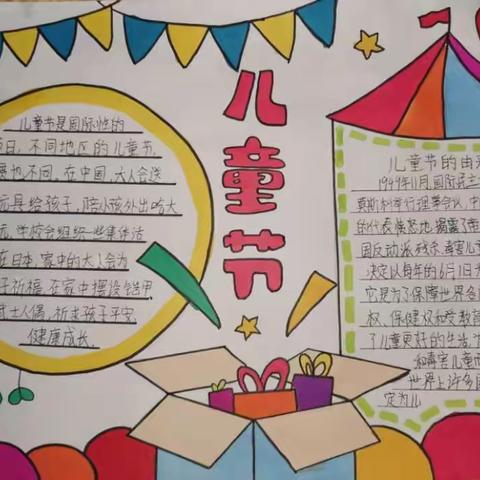 儿童节
儿童节是国际性的
日,不同地区的儿童节,
地不同,在中国,大人会送
玩具给孩子,陪小孩外出吃大
学校会组织一些集体活
在日本,家中的大人会为
子祈福,在家中摆设铠甲
武士人偶,祈求孩子平安
健康成长.
儿童节的由
1949年11月,国际民主
莫斯科举行理事会议,中
的代表愤怒地揭露了帝
国反动派残杀、毒害儿童
决定以每年的6月1日为
它是为了保障世界各
权、保健权和受教育
了儿童更好的生活,
和毒害儿童
世界上许多国
定为儿